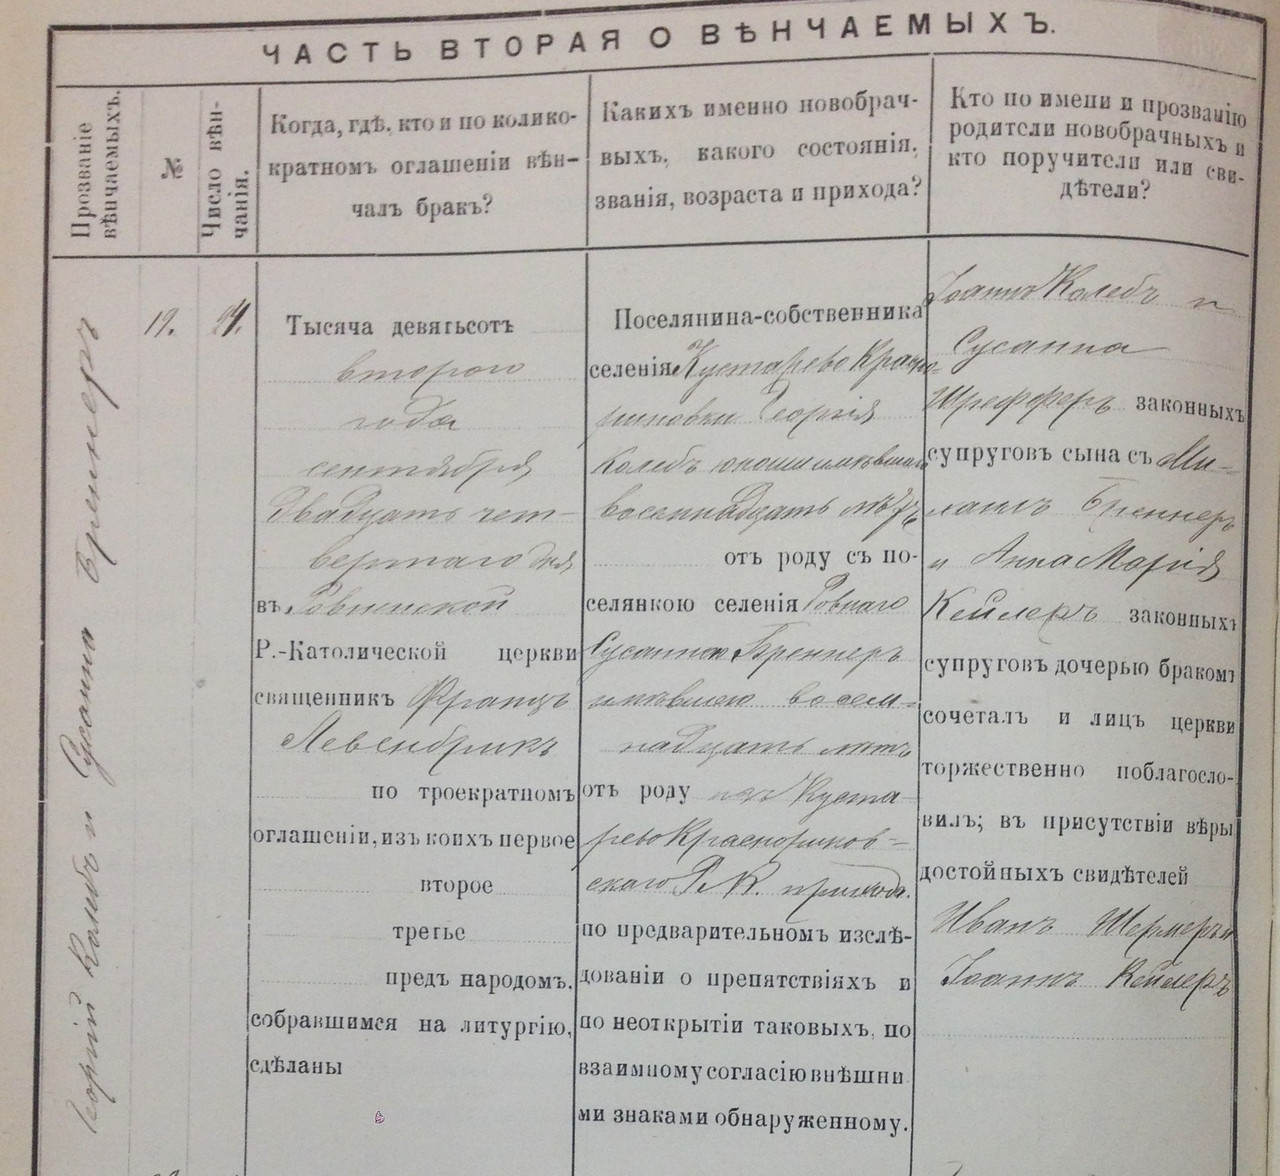 ЧАСТЬ ВТОРАЯ О ВѢНЧАЕМЫХЪ.
Прозваніе
вѣнчаемыхъ.
№
Число вѣн-
чанія.
Когда, гдѣ, кто и по колико-
кратномъ оглашеніи вѣн-
чалъ бракъ?
Какихъ именно новобрач-
ныхъ, какого состоянія,
званія, возраста и прихода?
Кто по имени и прозванію
родители новобрачныхъ и
кто поручители или сви-
дѣтели?
Георгій Колебъ и Сусанна Бреннеръ
19.
24.
Тысяча девятьсотъ
второго
года
сентября
двадцать чет-
вертаго дня
въ Ровненской
Р.-Католической церкви
священникъ Францъ
Левенбрикъ
по троекратномъ
оглашеніи, изъ коихъ первое
второе
третье
предъ народомъ,
собравшимся на литургію,
сдѣланы
Поселянина-собственника
селенія Кустарево Красно-
риновки Георгія
Колебъ юноши имѣвшаго
восемнадцать лѣтъ
отъ роду съ по-
селянкою селенія Ровнаго
Сусанною Бреннеръ
имѣвшею восем-
надцать лѣтъ
отъ роду изъ Куста-
рево Краснориков-
скаго Р. К. прихода.
по предварительномъ изслѣ-
дованіи о препятствіяхъ и
по неоткрытіи таковыхъ, по
взаимному согласію внѣшни
ми знаками обнаруженному.
Іоаннъ Колебъ и
Сусанна
Шрефферъ законныхъ
супруговъ сына съ Ми-
хаилъ Бреннеръ
и Анна Марія
Кейлеръ законныхъ
супруговъ дочерью бракомъ
сочеталъ и лицъ церкви
торжественно поблагосло-
вилъ; въ присутствіи вѣры
достойныхъ свидѣтелей
Иванъ Шермеръ и
Іоаннъ Кейлеръ